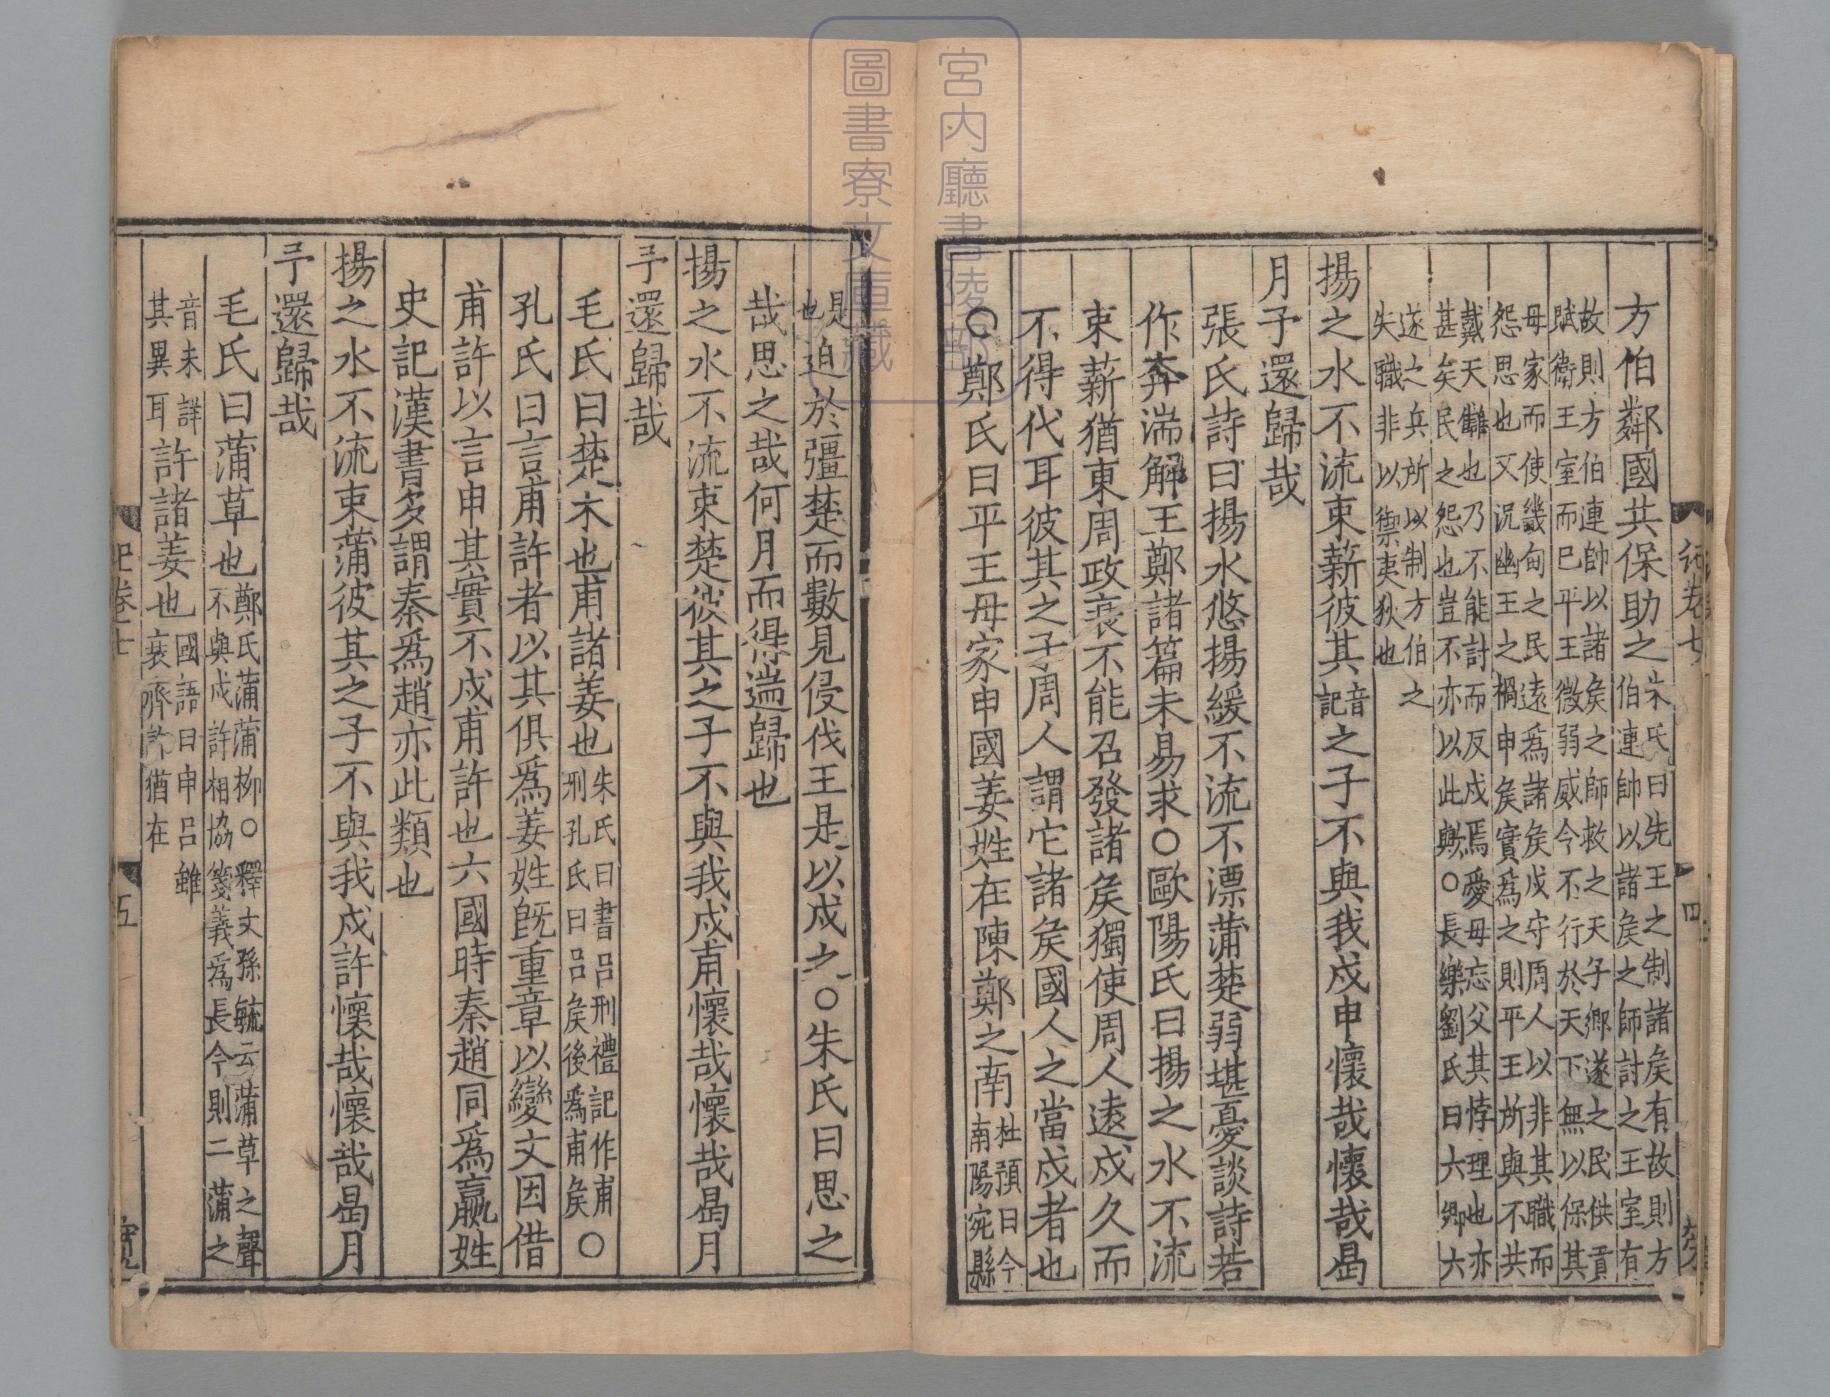 方伯鄰國共保助之
朱氏曰先王之制諸侯有故則方
伯連帥以諸侯之師討之王室有
故則方伯連帥以諸侯之師救之天子鄉遂之民供貢
賦衛王室而已平王微弱威令不行於天下無以保其
母家而使畿甸之民遠爲諸侯戍守周人以非其職而
怨思也又况幽王之禍申侯實爲之則平王所與不共
戴天讎也乃不能討而反戍焉愛母忘父其悖理也亦
甚矣民之怨也豈不亦以此歟○長樂劉氏曰六鄉六
遂之兵所以制方伯之
失職非以禦夷狄也
揚之水不流束薪彼其音記之子不與我戍申懷哉懷哉曷
月予還歸哉
張氏詩曰揚水悠揚緩不流不漂蒲楚弱堪憂談詩若
作奔湍解王鄭諸篇未易求○歐陽氏曰揚之水不流
束薪猶東周政衰不能召發諸侯獨使周人遠戍久而
不得代耳彼其之子周人謂它諸侯國人之當戍者也
○鄭氏曰平王母家申國姜姓在陳鄭之南
杜預曰今
南陽宛縣
記卷七
四
是
也
迫於彊楚而數見侵伐王是以戍之○朱氏曰思之
哉思之哉何月而得遄歸也
揚之水不流束楚彼其之子不與我戍甫懷哉懷哉曷月
予還歸哉
毛氏曰楚木也甫諸姜也
朱氏曰書呂刑禮記作甫
刑孔氏曰呂侯後爲甫侯
○
孔氏曰言甫許者以其俱爲姜姓旣重章以變文因借
甫許以言申其實不戍甫許也六國時秦趙同爲嬴姓
史記漢書多謂秦爲趙亦此類也
揚之水不流束蒲彼其之子不與我戍許懷哉懷哉曷月
予還歸哉
毛氏曰蒲草也
鄭氏蒲蒲柳○釋文孫毓云蒲草之聲
不與戍許相協箋義爲長今則二蒲之
音未詳
其異耳
許諸姜也
國語曰申呂雖
衰齊許猶在
記卷七
五
寛
宮内廳書陵部
圖書寮文庫藏